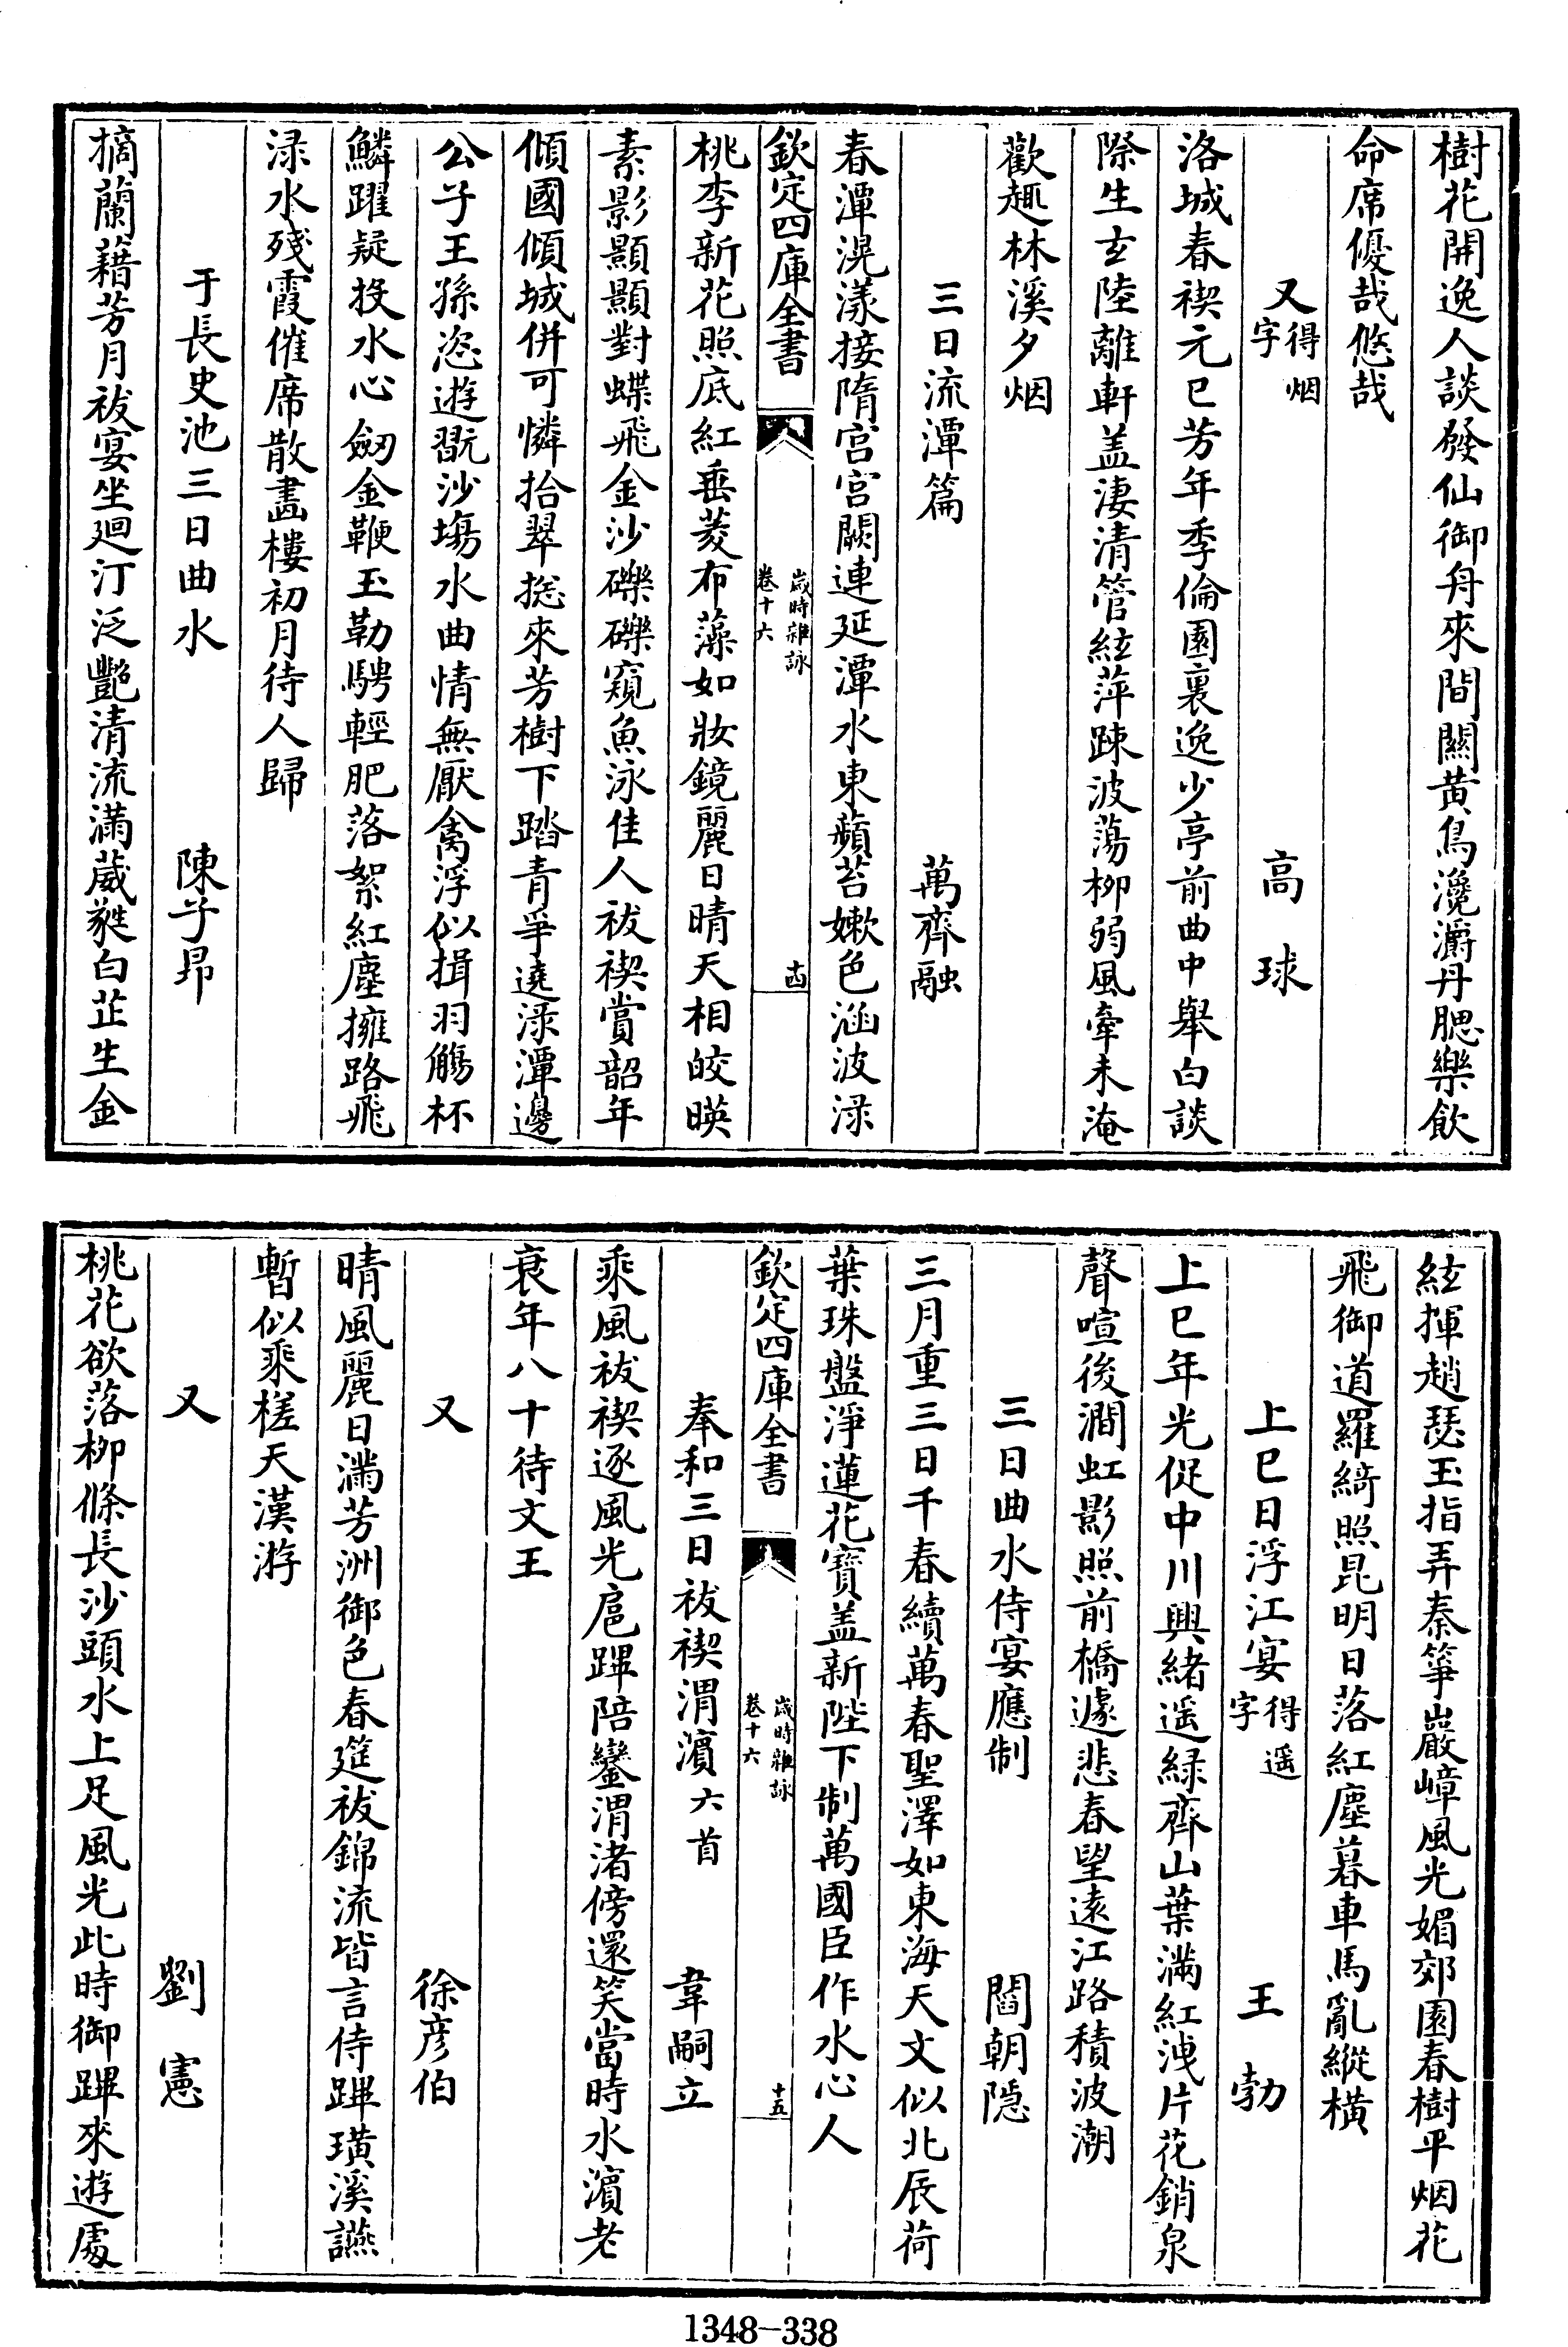 樹花開逸人談發仙御舟來間關黄鳥瀺灂丹腮樂飲
命席優哉悠哉
又得烟字 高球
洛城春禊元巳芳年季倫園裏逸少亭前曲中舉白談
際生玄陸離軒盖淒清管絃萍踈波蕩柳弱風牽未淹
歡趣林溪夕烟
三日流潭篇 萬齊融
春潭滉漾接隋宫宫闕連延潭水東蘋苔嫰色涵波渌
欽定四庫全書 歲時雜詠 卷十六 十四
桃李新花照底紅垂菱布藻如妝鏡麗日晴天相皎暎
素影顯顯對蝶飛金沙礫礫窺魚泳佳人祓禊賞韶年
傾國傾城併可憐拾翠捴來芳樹下踏青爭遶渌潭邊
公子王孫恣遊翫沙塲水曲情無厭禽浮似揖羽觴杯
鱗躍疑投水心劒金鞭玉勒騁輕肥落絮紅塵擁路飛
渌水殘霞催席散畫樓初月待人歸
于長史池三日曲水 陳子昻
摘蘭藉芳月祓宴坐廻汀泛艷清流滿葳蕤白芷生金
絃揮趙瑟玉指弄秦箏巖嶂風光媚郊園春樹平烟花
飛御道羅綺照昆明日落紅塵暮車馬亂縱横
上巳日浮江宴得遥字 王勃
上巳年光促中川興緒遥緑齊山葉滿紅洩片花銷泉
聲喧後澗虹影照前橋遽悲春望遠江路積波潮
三日曲水侍宴應制 閻朝隠
三月重三日千春續萬春聖澤如東海天文似北辰荷
葉珠盤淨蓮花寶盖新陛下制萬國臣作水心人
欽定四庫全書 歲時雜詠 卷十六 十五
奉和三日祓禊渭濵六首 韋嗣立
乘風祓禊逐風光扈蹕陪鑾渭渚傍還笑當時水濵老
衰年八十待文王
又 徐彦伯
晴風麗日滿芳洲御色春筵祓錦流皆言侍蹕璜溪讌
暫似乘槎天漢游
又 劉憲
桃花欲落柳條長沙頭水上足風光此時御蹕來遊處
1348-338